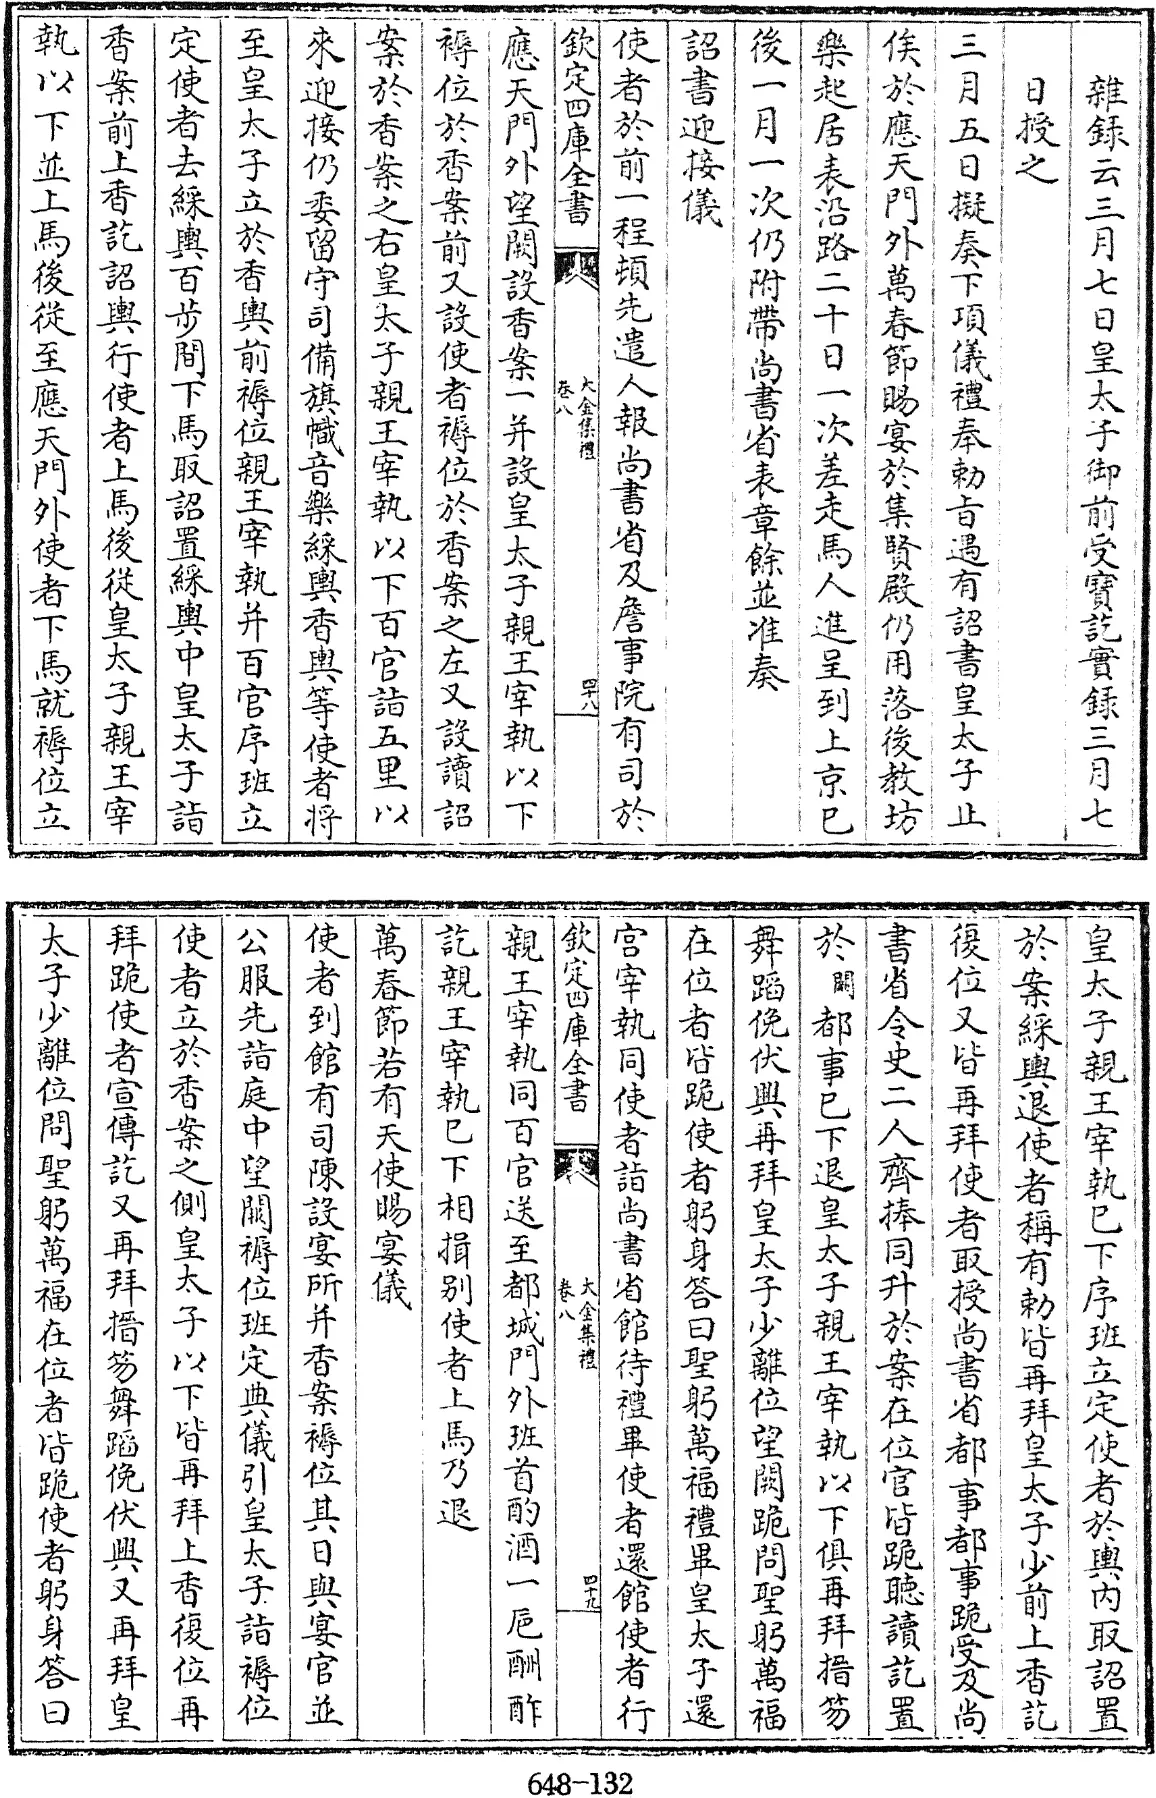 雜録云三月七日皇太子御前受寶訖實録三月七
日授之
三月五日擬奏下項儀禮奉勅旨遇有詔書皇太子止
俟於應天門外萬春節賜宴於集賢殿仍用落後教坊
樂起居表沿路二十日一次差走馬人進呈到上京已
後一月一次仍附帶尚書省表章餘並准奏
詔書迎接儀
使者於前一程頓先遣人報尚書省及詹事院有司於
欽定四庫全書
大金集禮
卷八
四十八
應天門外望闕設香案一并設皇太子親王宰執以下
褥位於香案前又設使者褥位於香案之左又設讀詔
案於香案之右皇太子親王宰執以下百官詣五里以
來迎接仍委留守司備旗幟音樂綵輿香輿等使者將
至皇太子立於香輿前褥位親王宰執并百官序班立
定使者去綵輿百步間下馬取詔置綵輿中皇太子詣
香案前上香訖詔輿行使者上馬後從皇太子親王宰
執以下並上馬後從至應天門外使者下馬就褥位立
皇太子親王宰執已下序班立定使者於輿内取詔置
於案綵輿退使者稱有勅皆再拜皇太子少前上香訖
復位又皆再拜使者取授尚書省都事都事跪受及尚
書省令史二人齊捧同升於案在位官皆跪聽讀訖置
於闕都事已下退皇太子親王宰執以下俱再拜搢笏
舞蹈俛伏興再拜皇太子少離位望闕跪問聖躬萬福
在位者皆跪使者躬身答曰聖躬萬福禮畢皇太子還
宫宰執同使者詣尚書省館待禮畢使者還館使者行
欽定四庫全書
大金集禮
卷八
四十九
親王宰執同百官送至都城門外班首酌酒一巵酬酢
訖親王宰執已下相揖别使者上馬乃退
萬春節若有天使賜宴儀
使者到館有司陳設宴所并香案褥位其日與宴官並
公服先詣庭中望闕褥位班定典儀引皇太子詣褥位
使者立於香案之側皇太子以下皆再拜上香復位再
拜跪使者宣傳訖又再拜搢笏舞蹈俛伏興又再拜皇
太子少離位問聖躬萬福在位者皆跪使者躬身答曰
648-132